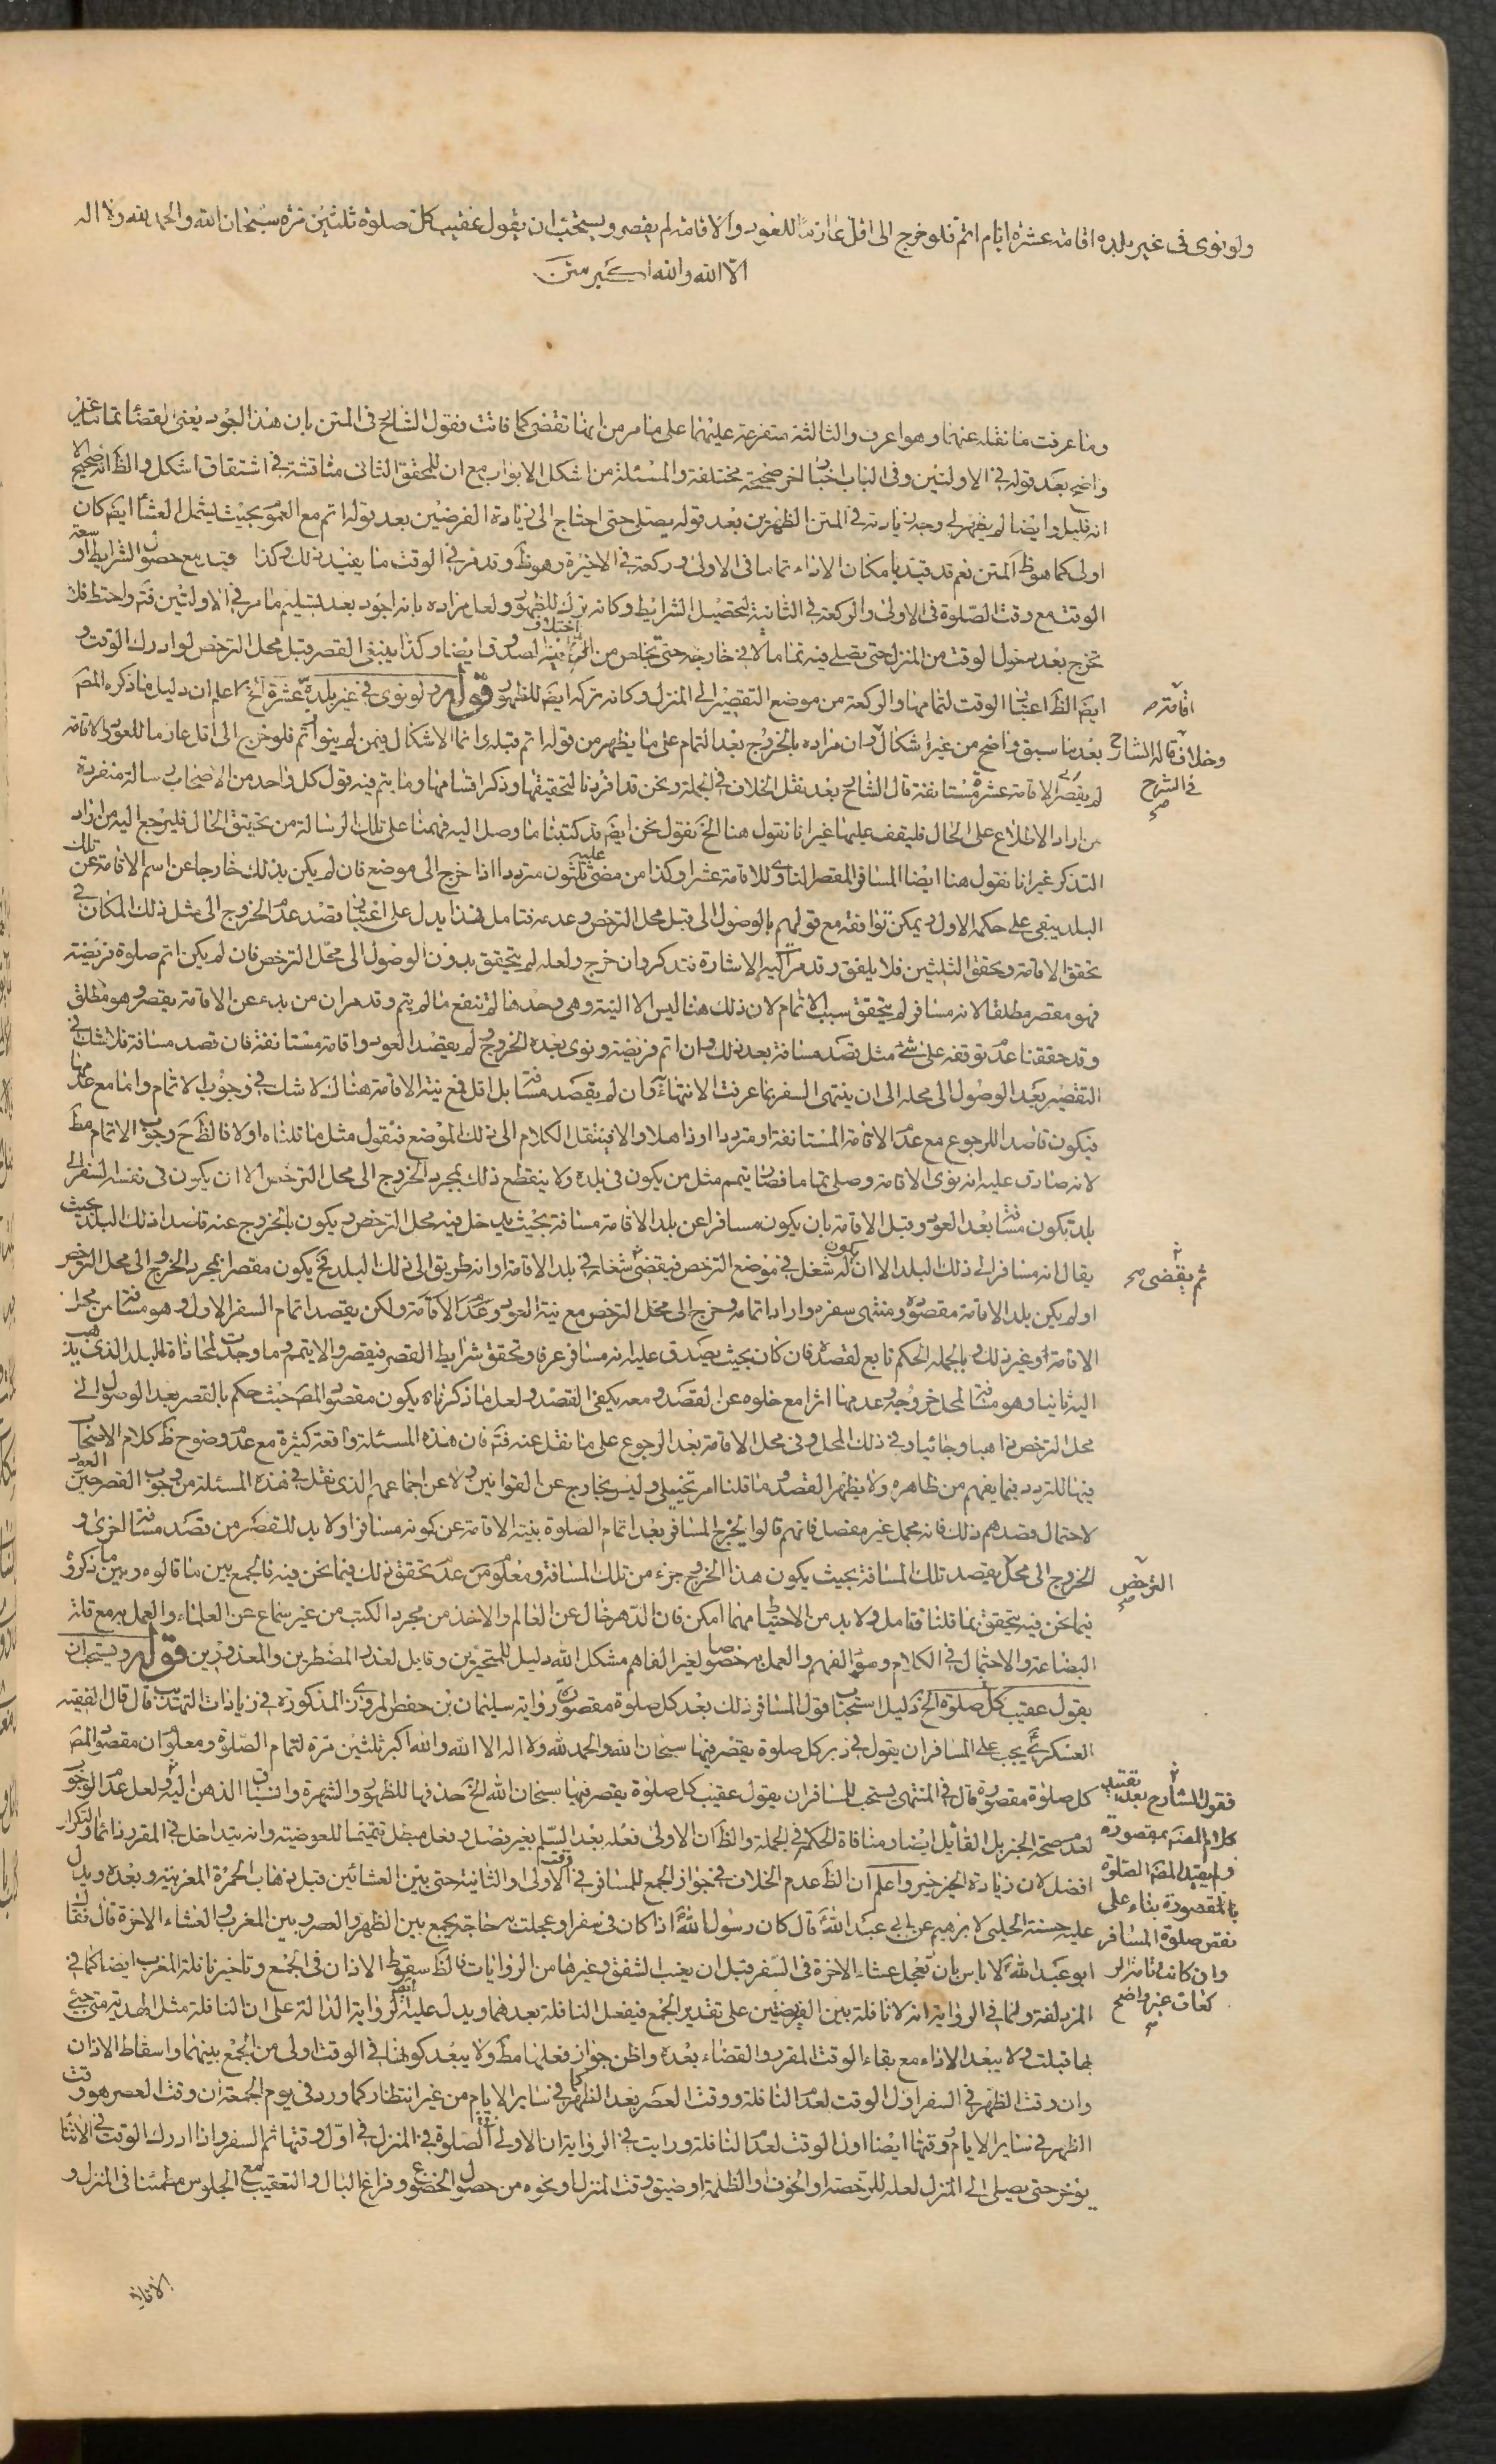 ولو نوى فى غير بلده اقامة عشرة ايام اتم فلو خرج الى اقل عازما للعود والاقامة لم يقصر ويستحب ان يقول عقيب كل صلوة ثلثين مرة سبحان الله والحمد لله ولا اله
الا الله والله اكبر متن
وما عرفت ما نقله عنهما وهو اعرف والثالثة متفرعة عليهما على ما مر من انها تقضى كما فاتت فقول الشارح فى المتن بان هذا اجود يعنى القضاء تماما غير
واضح بعد قوله فى الاولتين وفى الباب اخبار اخر صحيحة مختلفة والمسئلة من اشكل الابواب مع ان للمحقق الثانى مناقشة فى اشتقاق اشكل والظ انه صحيح الا
انه قليل وايضا لم يظهر لى وجه زيادته فى المتن الظهرين بعد قوله يصلى حتى احتاج الى زيادة الفرضين بعد قوله اتم مع العموم بحيث يشمل العشاء ايضا كان
اولى كما هو ظ المتن نعم قد قيد بامكان الاداء تماما فى الاولى وركعة فى الاخيرة وهو ظ وقد مر فى الوقت ما يفيد ذلك وكذا قيد بمع حصول الشرايط او سعة
الوقت مع وقت الصلوة فى الاولى والركعة فى الثانية لتحصيل الشرايط وكانه ترك للظهور ولعل مراده بانه اجود بعد تسليم ما مر فى الاولتين فتم واحتط فلا
تخرج بعد دخول الوقت من المنزل حتى تصلى فيه تماما لا فى خارجه حتى تخلص من اختلاف ايضا وكذا ينبغى القصر قبل محل الترخص لو ادرك الوقت و
ايضا الظ اعتبار الوقت لتمامها والركعة من موضع التقصير الى المنزل وكانه تركه ايضا للظهور قوله ولو نوى فى غير بلده عشرة الخ اعلم ان دليل ما ذكره المص
اقامة صح
بعد ما سبق واضح من غير اشكال وان مراده بالخروج بعد التمام على ما يظهر من قوله اتم قبله انما الاشكال فيمن لم ينو اتم فلو خرج الى اقل عازما للعود والاقامة
وخلاف قاله الشارح
فى الشرح صح
لم يقصر اى الاقامة عشرة مستانفة قال الشارح بعد نقل الخلاف فى الجملة ونحن قد افردنا لتحقيقها وذكر اقسامها وما يتم فيه قول كل واحد من الاصحاب رسالة منفردة
من اراد الاطلاع على الحال فليقف عليها غير انا نقول هنا الخ نقول نحن ايضا قد كتبنا ما وصل اليه فهمنا على تلك الرسالة من تحقيق الحال فليرجع اليه من اراد
التذكر غير انا نقول هنا ايضا المسافر المقصر الناوى للاقامة عشرا وكذا من مضى عليه ثلثون مترددا اذا خرج الى موضع فان لم يكن بذلك خارجا عن اسم الاقامة عن تلك
البلد يبقى على حكمه الاول ويمكن توافقه مع قولهم بالوصول الى قبل محل الترخص وعدمه فتامل فهذا يدل على اعتبار قصد عدم الخروج الى مثل ذلك المكان فى
تحقق الاقامة وتحقق الثلثين فلا يلفق وقد مر اليه الاشارة فتذكر وان خرج ولعله لم يتحقق بدون الوصول الى محل الترخص فان لم يكن اتم صلوة فريضة
فهو مقصر مطلقا لانه مسافر لم يتحقق سبب الاتمام لان ذلك هنا ليس الا النية وهى وحدها لم تنفع ما لم يتم وقد مر ان من بدء عن الاقامة يقصر وهو مطلق
وقد حققنا عدم توقفه على شئ مثل قصد مسافة بعد ذلك وان اتم فريضة ونوى بعده الخروج لم يقصد العود واقامة مستانفة فان قصد مسافة فلا شك فى
التقصير بعد الوصول الى محله الى ان ينتهى السفر بما عرفت الانتهاء وان لم يقصد مسافة بل اقل فمع نية الاقامة هناك لا شك فى وجوب الاتمام واما مع عدمها
فيكون قاصدا للرجوع مع عدم الاقامة المستانفة او مترددا او ذاهلا والا فينتقل الكلام الى ذلك الموضع فنقول مثل ما قلناه اولا فالظ ح وجوب الاتمام مط
لانه صادق عليه انه نوى الاقامة وصلى تماما فصار يتمم مثل من يكون فى بلده ولا ينقطع ذلك بمجرد الخروج الى محل الترخص الا ان يكون فى نفسه السفر الى
بلد تكون مسافة بعد العود وقبل الاقامة بان يكون مسافرا عن بلد الاقامة مسافة بحيث يدخل فيه محل الترخص ويكون بالخروج عنه قاصدا ذلك البلد بحيث
يقال انه مسافر الى ذلك البلد الا ان يكون له شغل فى موضع الترخص فيقضى شغله فى بلد الاقامة او انه طريق الى ذلك البلد فح يكون مقصرا بمجرد الخروج الى محل الترخص
ثم يقضى صح
او لم يكن بلد الاقامة مقصوده ومنتهى سفره واراد اتمامه وخرج الى محل الترخص مع نية العود وعدم الاقامة ولكن يقصد اتمام السفر الاول وهو مسافة من محل
الاقامة او غير ذلك وبالجملة الحكم تابع لقصده فان كان بحيث يصدق عليه انه مسافر عرفا وتحقق شرايط القصر فيقصر والا يتمم وما وجدت لمحاذاة البلد الذى يذهب
اليه ثانيا وهو مسافة لمحل خروجه وعدمها اثرا مع خلوه عن القصد ومعه يكفى القصد ولعل ما ذكرناه يكون مقصود المص حيث حكم بالقصر بعد الوصول الى
محل الترخص ذاهبا وجائيا وفى ذلك المحل وفى محل الاقامة بعد الرجوع على ما نقل عنه فتم فان هذه المسئلة واقعة كثيرة مع عدم وضوح ظ كلام الاصحاب
فيها للتردد فيما يفهم من ظاهره ولا يظهر القصد وما قلنا امر تخيلى وليس بخارج عن القوانين ولا عن اجماعهم الذى نقل فى هذه المسئلة من وجوب القصر حين العود
لاحتمال قصدهم ذلك فانه مجمل غير مفصل فانهم قالوا يخرج المسافر بعد اتمام الصلوة بنية الاقامة عن كونه مسافرا ولا بد للقصر من قصد مسافة اخرى و
الخروج الى محل يقصد تلك المسافة بحيث يكون هذا الخروج جزء من تلك المسافة ومعلوم عدم تحقق ذلك فيما نحن فيه فالجمع بين ما قالوه وبين ما ذكروه
الترخص صح
فيما نحن فيه يتحقق بما قلنا فتامل ولا بد من الاحتياط مهما امكن فان الدهر خال عن العالم والاخذ من مجرد الكتب من غير سماع عن العلماء والعمل به مع قلة
البضاعة والاحتمال فى الكلام وسوء الفهم والعمل به خصوصا لغير الفاهم مشكل الله دليل للمتحيرين وقابل لعذر المضطرين والمعذورين قوله ويستحب ان
يقول عقيب كل صلوة الخ دليل استحباب قول المسافر ذلك بعد كل صلوة مقصورة رواية سليمان بن حفص المروزى المذكورة فى زيادات التهذيب قال قال الفقيه
العسكرى يجب على المسافر ان يقول فى دبر كل صلوة يقصر فيها سبحان الله والحمد لله ولا اله الا الله والله اكبر ثلثين مرة لتمام الصلوة ومعلوم ان مقصود المص
كل صلوة مقصورة قال فى المنتهى يستحب للمسافر ان يقول عقيب كل صلوة يقصر فيها سبحان الله الخ حذفها للظهور والشهرة وانسياق الذهن اليه ولعل عدم الوجوب
لعدم صحة الخبر بل القائل ايضا ومنافاة الحكم فى الجملة والظ ان الاولى فعله بعد السلم بغير فصل وفعل تتميما للعوضية وانه يتداخل فى المقرر دائما والتكرار
افضل لان زيادة الخير خير واعلم ان الظ عدم الخلاف فى جواز الجمع للمسافر فى وقت الاولى والثانية حتى بين العشائين قبل ذهاب الحمرة المغربية وبعده ويدل
عليه حسنة الحلبى لابرهيم عن ابى عبد الله قال كان رسول الله اذا كان فى سفر او عجلت به حاجة يجمع بين الظهر والعصر وبين المغرب والعشاء الاخرة قال فقال
ابو عبد الله لا باس بان تعجل عشاء الاخرة فى السفر قبل ان يغيب الشفق وغيرها من الروايات والظ سقوط الاذان فى الجمع وتاخير نافلة المغرب ايضا كما فى
المزدلفة ولما فى الرواية انه لا نافلة بين الفريضتين على تقدير الجمع فيفعل النافلة بعدهما ويدل عليه ايضا الرواية الدالة على ان النافلة مثل الهدية متى جئ
بها قبلت ولا يبعد الاداء مع بقاء الوقت المقرر والقضاء بعده واظن جواز فعلها مط ولا يبعد كونها فى الوقت اولى من الجمع بينهما واسقاط الاذان
وان وقت الظهر فى السفر اول الوقت لعدم النافلة ووقت العصر بعد الظهر كما فى ساير الايام من غير انتظار كما ورد فى يوم الجمعة ان وقت العصر هو وقت
الظهر فى ساير الايام وقتها ايضا اول الوقت لعدم النافلة ورايت فى الرواية ان الاولى الصلوة فى المنزل فى اول وقتها ثم السفر واذا ادرك الوقت فى الاثناء
يؤخر حتى يصلى الى المنزل لعله للرخصة او الخوف والظلمة او ضيق وقت المنزل ونحوه من حصول الخضوع وفراغ البال والتعقيب مع الجلوس مطمئنا فى المنزل و
فقول الشارح بعد تقييد
كلام المص بمقصورة
ولم يقيد المص الصلوة
بالمقصورة بناء على
نقص صلوة المسافر
وان كانت تامة
كفات غير واضح صح
الاقامة